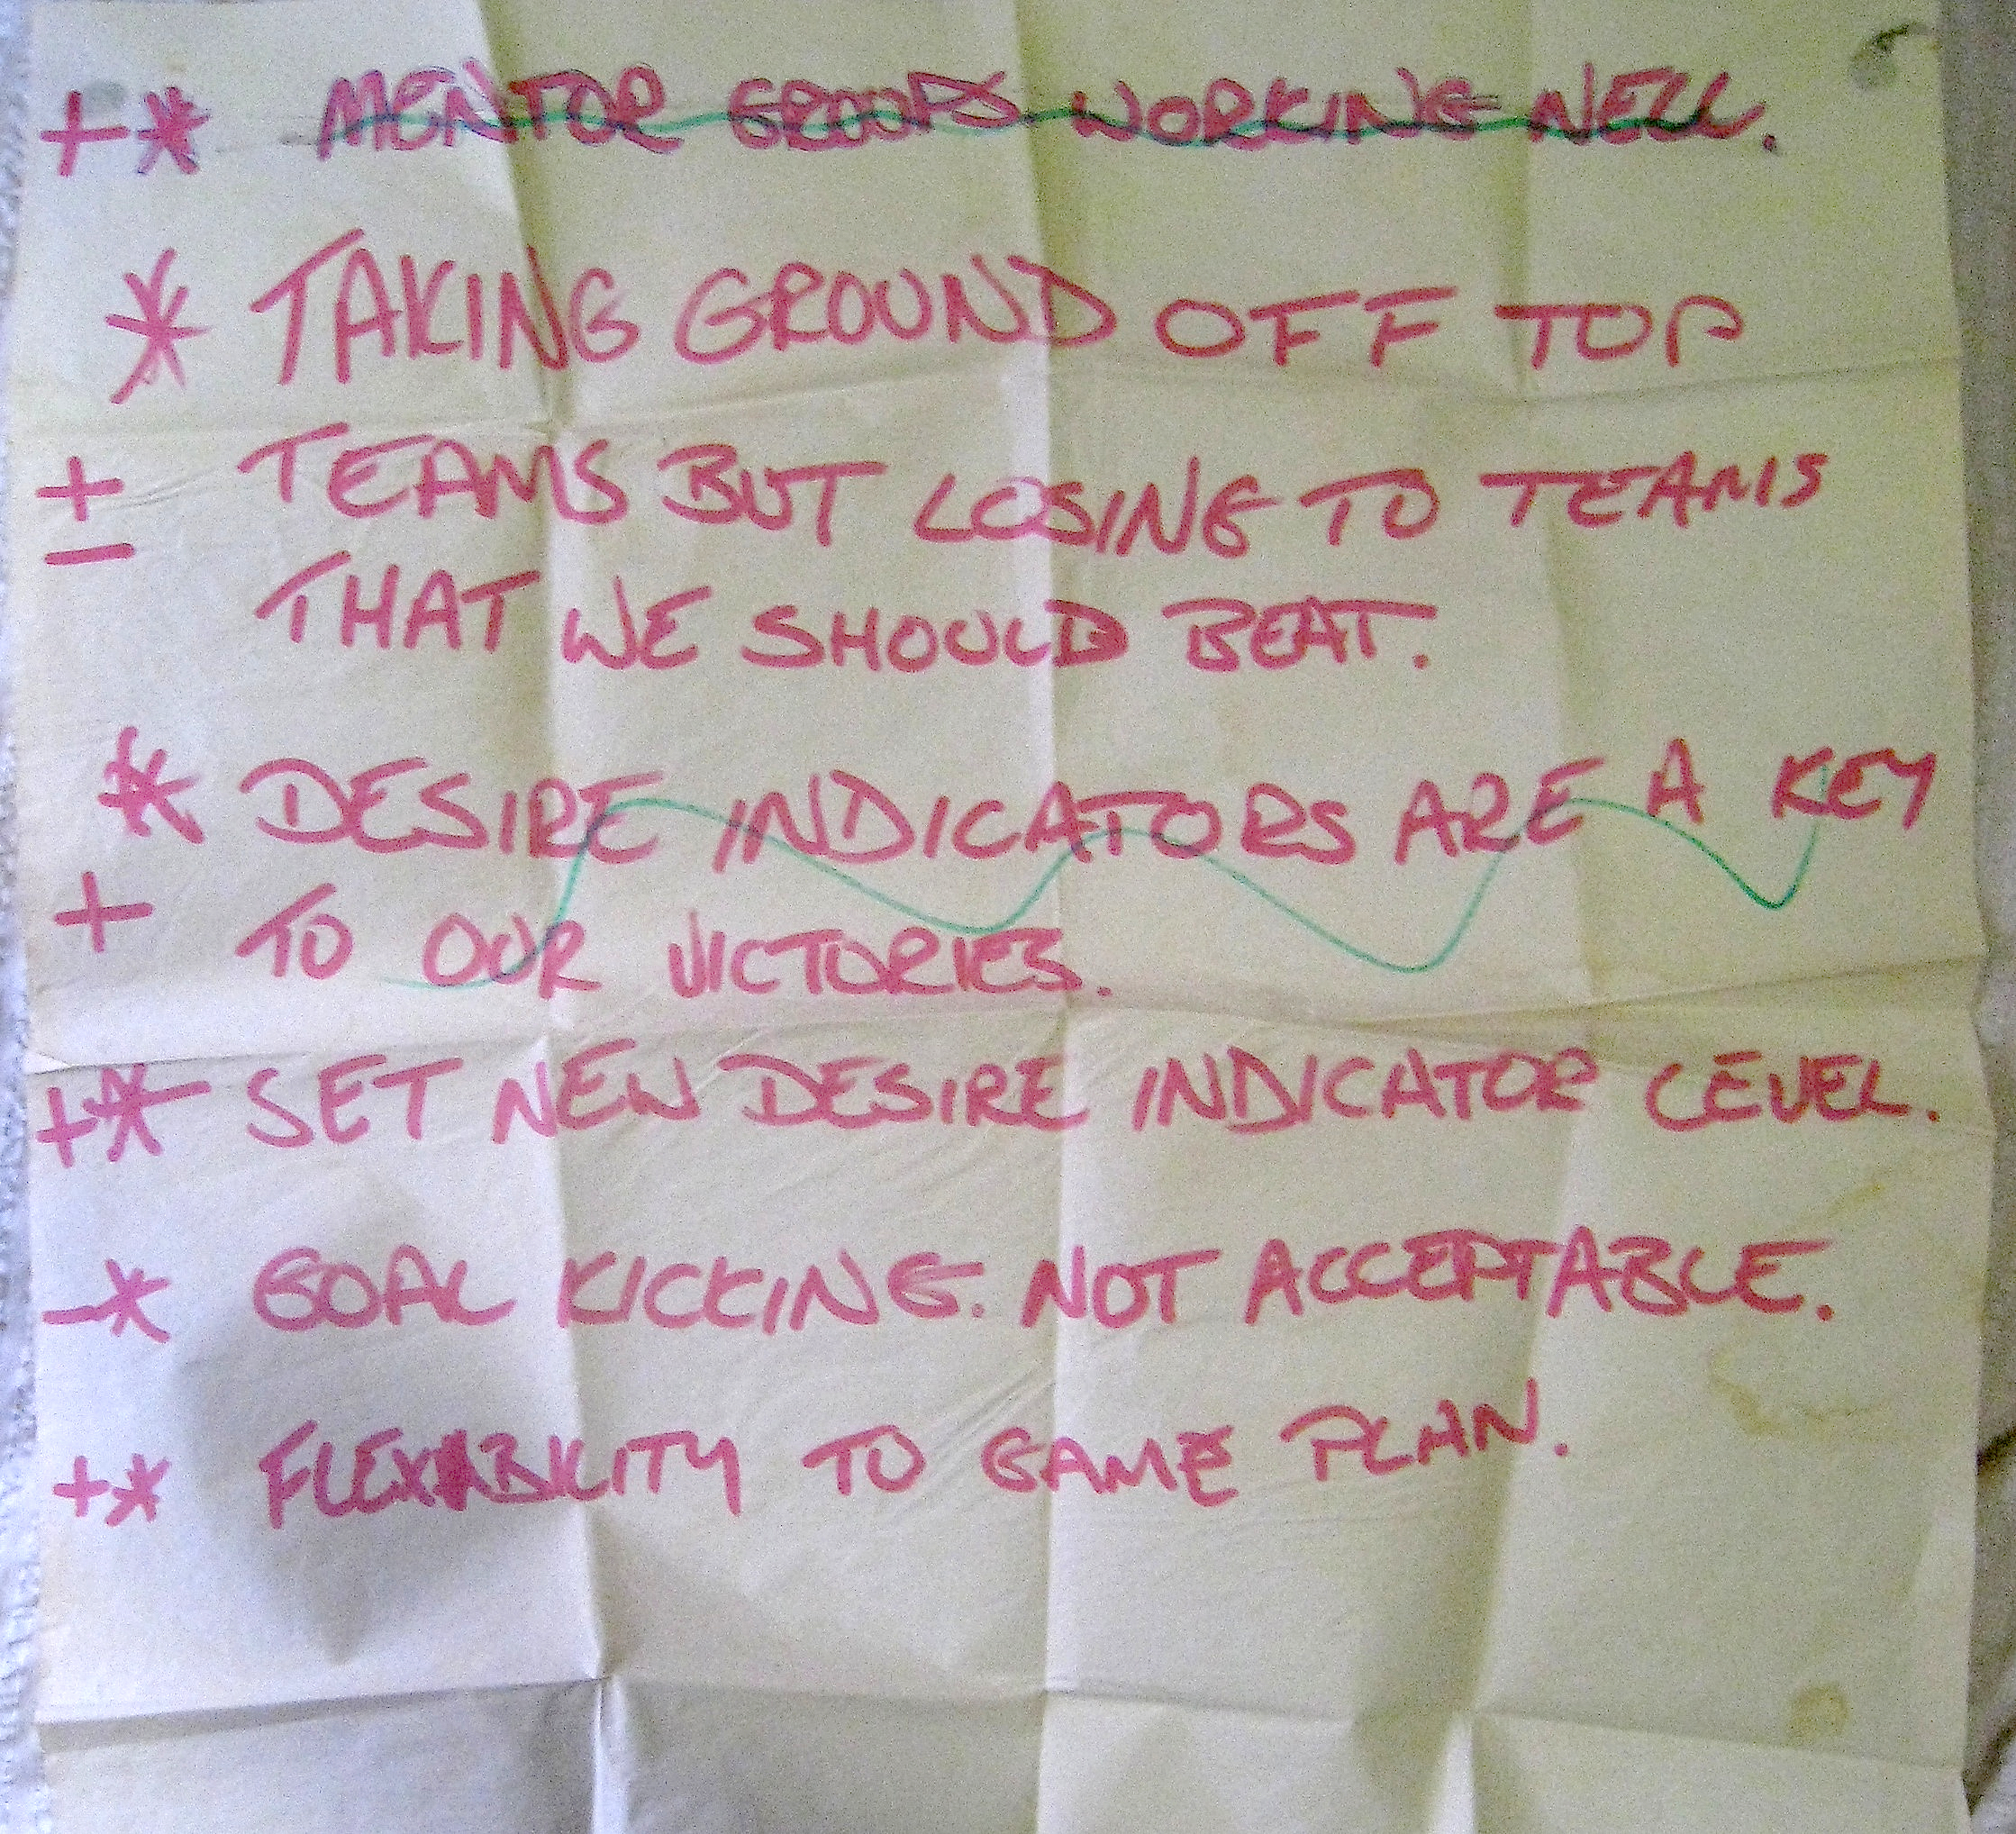 +* MENTOR GROUPS WORKING WELL.
* TAKING GROUND OFF TOP
+ TEAMS BUT LOSING TO TEAMS
- THAT WE SHOULD BEAT.
* DESIRE INDICATORS ARE A KEY
+ TO OUR VICTORIES.
+* SET NEW DESIRE INDICATOR LEVEL.
-* GOAL KICKING. NOT ACCEPTABLE.
+* FLEXABILITY TO GAME PLAN.